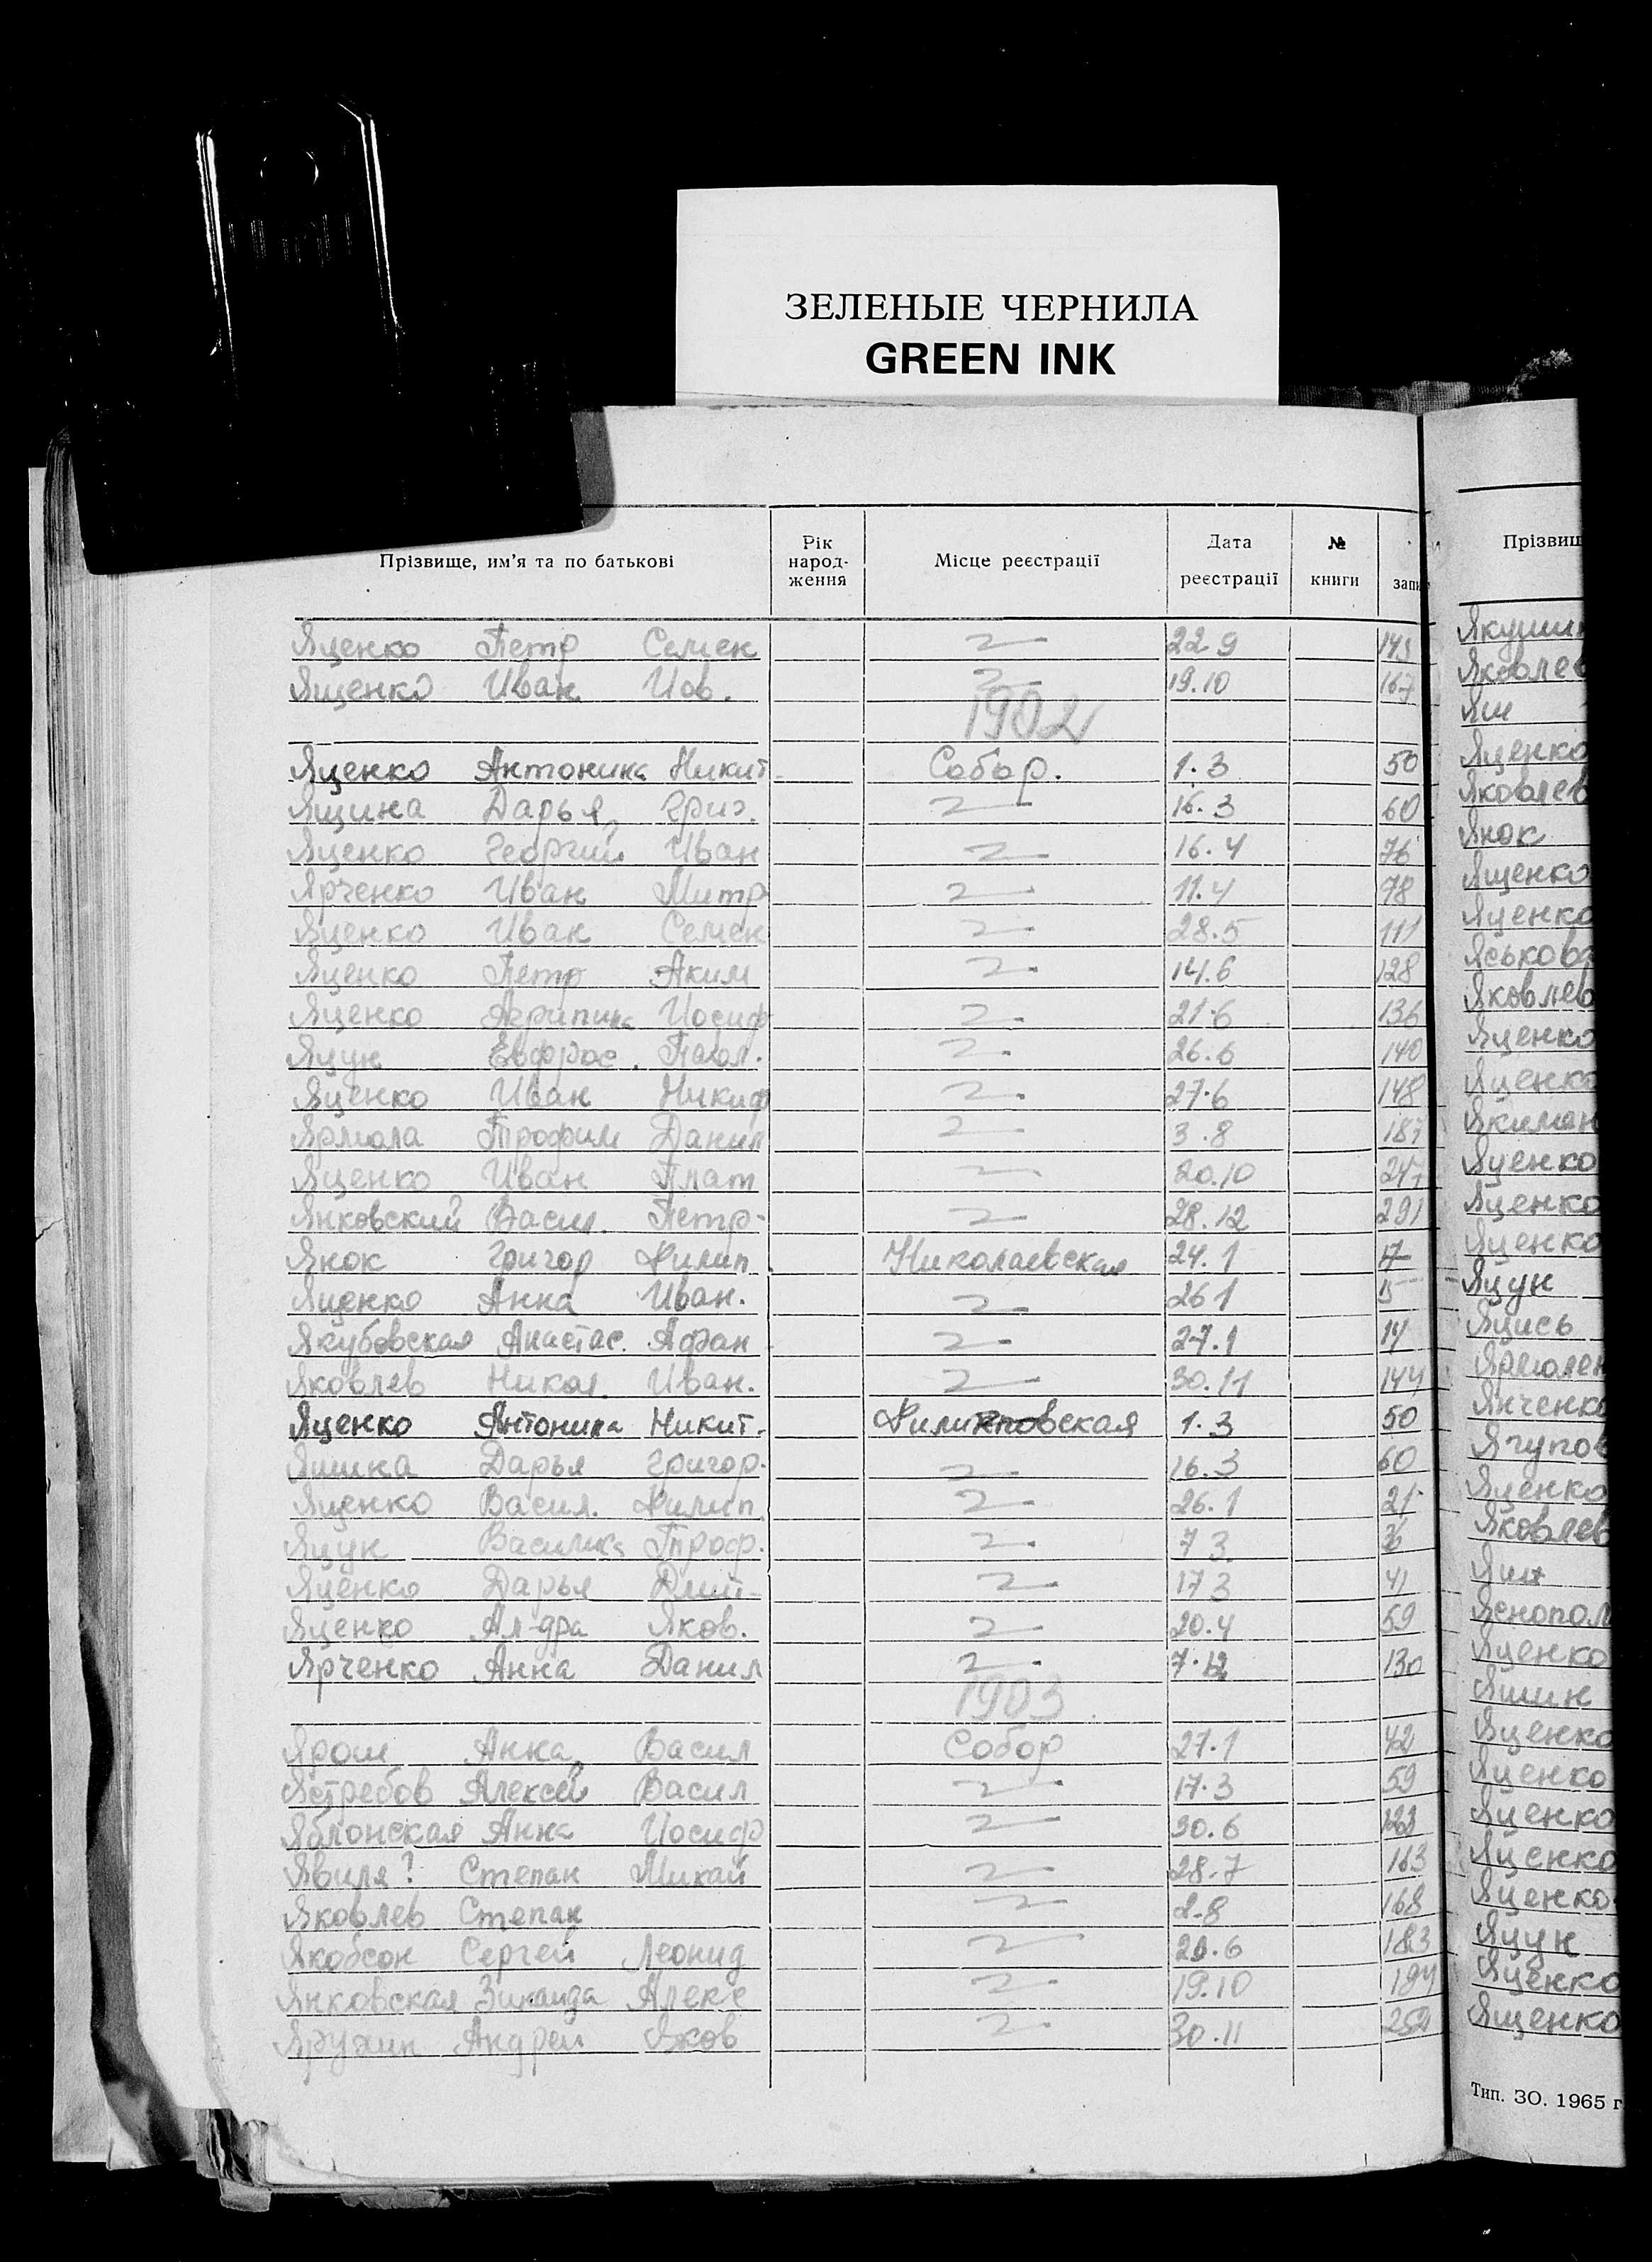 ЗЕЛЕНЫЕ ЧЕРНИЛА
GREEN INK
Прізвище, им’я та по батькові Рік народження Місце реєстрації Дата реєстрації № книги запи Прізвищ
Яценко Петр Семен 〃 22 9 143
Ященко Иван Иов. 〃 19.10 167
1902
Яценко Антонина Никит. Собор. 1.3 50
Ящина Дарья Григ. 〃 16.3 60
Яценко Георгий Иван 〃 16.4 76
Ярченко Иван Митр 〃 11.4 78
Яценко Иван Семен 〃 28.5 111
Яценко Петр Аким 〃 14.6 128
Яценко Агрипина Иосиф 〃 21.6 136
Яцун Евфрос. 〃 26.6 140
Яценко Иван Никиф 〃 27.6 148
Ярмола Трофим Данил 〃 3.8 187
Яценко Иван Плат 〃 20.10 247
Янковский Васил. Петр. 〃 28.12 291
Янок Григор Филип. Николаевская 24.1
Яценко Анна Иван. 〃 26 1
Якубовская Анастас. Афан. 〃 27.1 14
Яковлев Никол. Иван. 〃 30.11 144
Яценко Антонина Никит. Филипповская 1.3 50
Яшина Дарья Григор. 〃 16.3 60
Яценко Васил. Филип. 〃 26.1 21
Яцун Василиса Троф. 〃 7 3
Яценко Дарья Дмит- 〃 17 3 41
Яценко Ал-дра Яков. 〃 20.4 59
Ярченко Анна Данил 〃 7.12 130
1903
Ярош Анна Васил Собор 27.1 42
Ястребов Алексей Васил 〃 17.3 59
Яблонская Анна Иосиф 〃 30.6 123
Явиля? Степан Михай 〃 28.7 163
Яковлев Степан 〃 2.8 168
Якобсон Сергей Леонид 〃 183
Янковская Зинаида Алекс 〃 19.10 194
Яружин Андрей Яков 〃 30.11 252
Якушин
Яковлев
Яш
Яценко
Яковлев
Янок
Ященко
Яценко
Яськова
Яковлев
Яценко
Яценко
Якиман
Яценко
Яценко
Яценко
Яцун
Яцись
Ярмолен
Янченко
Ягупов
Яценко
Яковлев
Яснопол
Яценко
Яшин
Яценко
Яценко
Яценко
Яценко
Яценко
Яцун
Яценко
Ященко
Тип. ЗО. 1965 г